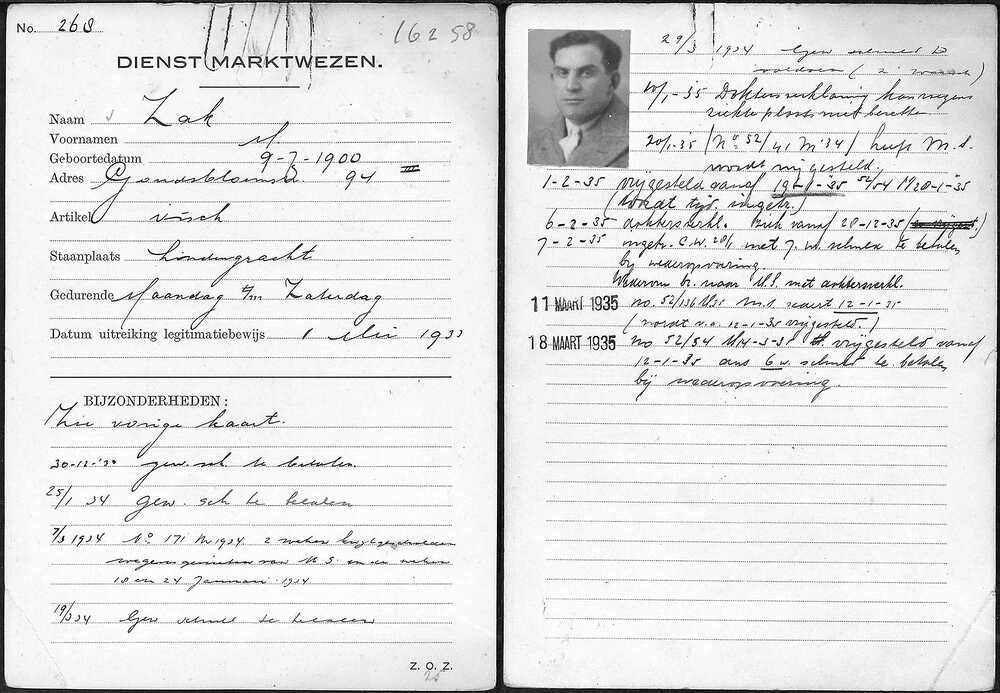 No. 268
16258
DIENST MARKTWEZEN.
Naam Zak
Voornamen M
Geboortedatum 9-7-1900
Adres Goudsbloemstr 94 III
Artikel visch
Staanplaats Lindengracht
Gedurende Maandag t/m Zaterdag
Datum uitreiking legitimatiebewijs 1 Mei 1933
BIJZONDERHEDEN:
Zie vorige kaart.
30-12-'33 gew. sch. te betalen.
25/1 34 gew. sch te betalen
7/3 1934 No 171 M 1934 2 weken
wegens genieten van M.S. in de weken
18 en 24 Januari 1934
19/3 34 Gew schuld te betalen
Z. O. Z.
25
29/3 1934 Gew schuld te
voldoen (2
10/1-35 Doktersverklaring kan wegens
ziekte plaats niet bezetten
20/1-35 (No 52/41 M '34) heeft M.S.
wordt vrijgesteld.
1-2-35 vrijgesteld vanaf 52/54 M 20-1-35
(Wordt tijd. ingetr.)
6-2-35 doktersverkl. Ziek vanaf 20-12-35
7-2-35 ingetr. C.W. 20/1 met 7 w. schuld te betalen
bij wederopvoering.
Wederom br. naar M.S. met doktersverkl.
11 MAART 1935 no. 52/136 M35 m.s. sedert 12-1-35
(wordt v.a. 12-1-35 vrijgesteld.)
18 MAART 1935 no 52/54 M14-3-35 vrijgesteld vanaf
12-1-35 dus 6 w. schuld te betalen
bij wederopvoering.